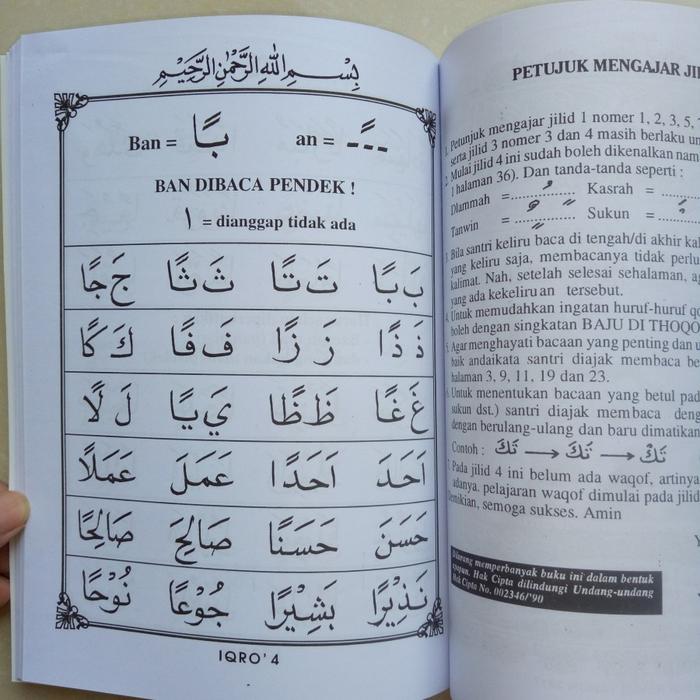 بِسْمِ اللهِ الرَّحْمٰنِ الرَّحِيْمِ
Ban = بًا an = ـًـ
BAN DIBACA PENDEK !
ا = dianggap tidak ada
بَ بًا تَ تًا ثَ ثًا جَ جًا
ذَ ذًا زَ زًا فَ فًا كَ كًا
غَ غًا ظَ ظًا يَ يًا لَ لًا
اَحَدَ اَحَدًا عَمَلَ عَمَلًا
حَسَنَ حَسَنًا صَالِحَ صَالِحًا
نَذِيْرًا بَشِيْرًا جُوْعًا نُوْحًا
IQRO' 4
PETUJUK MENGAJAR
Petunjuk mengajar jilid 1 nomer 1, 2, 3, 5,
serta jilid 3 nomer 3 dan 4 masih berlaku
Mulai jilid 4 ini sudah boleh dikenalkan
halaman 36). Dan tanda-tanda seperti :
Dlammah = ........ Kasrah =
Tanwin = ........ Sukun =
Bila santri keliru baca di tengah/di akhir
yang keliru saja, membacanya tidak
kalimat. Nah, setelah selesai sehalaman,
yang ada kekeliruan tersebut.
Untuk memudahkan ingatan huruf-huruf
boleh dengan singkatan BAJU DI THOQO
Agar menghayati bacaan yang penting dan
baik andaikata santri diajak membaca
halaman 3, 9, 11, 19 dan 23.
Untuk menentukan bacaan yang betul
sukun dst.) santri diajak membaca
dengan berulang-ulang dan baru dimatikan
Contoh : تَكَ → تَكَ → تَكْ
Pada jilid 4 ini belum ada waqof, artinya
adanya, pelajaran waqof dimulai pada jilid
Demikian, semoga sukses. Amin
Dilarang memperbanyak buku ini dalam bentuk
apapun. Hak Cipta dilindungi Undang-undang
Hak Cipta No. 002346/'90